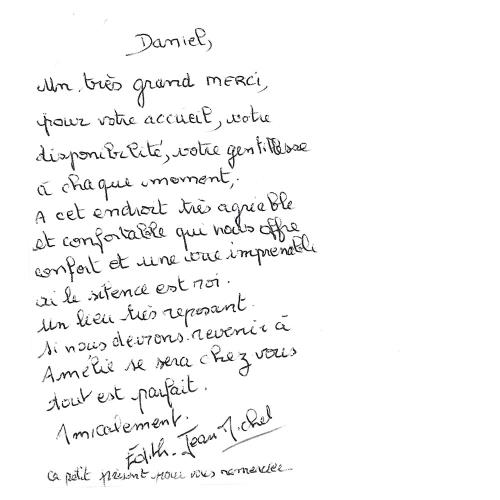 Daniel,
Un très grand MERCI,
pour votre accueil, votre
disponibilité, votre gentillesse
à chaque moment,.
A cet endroit très agréable
et confortable qui nous offre
confort et une vue imprenable
ici le silence est roi.
Un lieu très reposant.
Si nous devrons revenir à
Amélie se sera chez vous
tout est parfait.
Amicalement.
Édith - Jean Michel
Ce petit présent pour vous remercier...